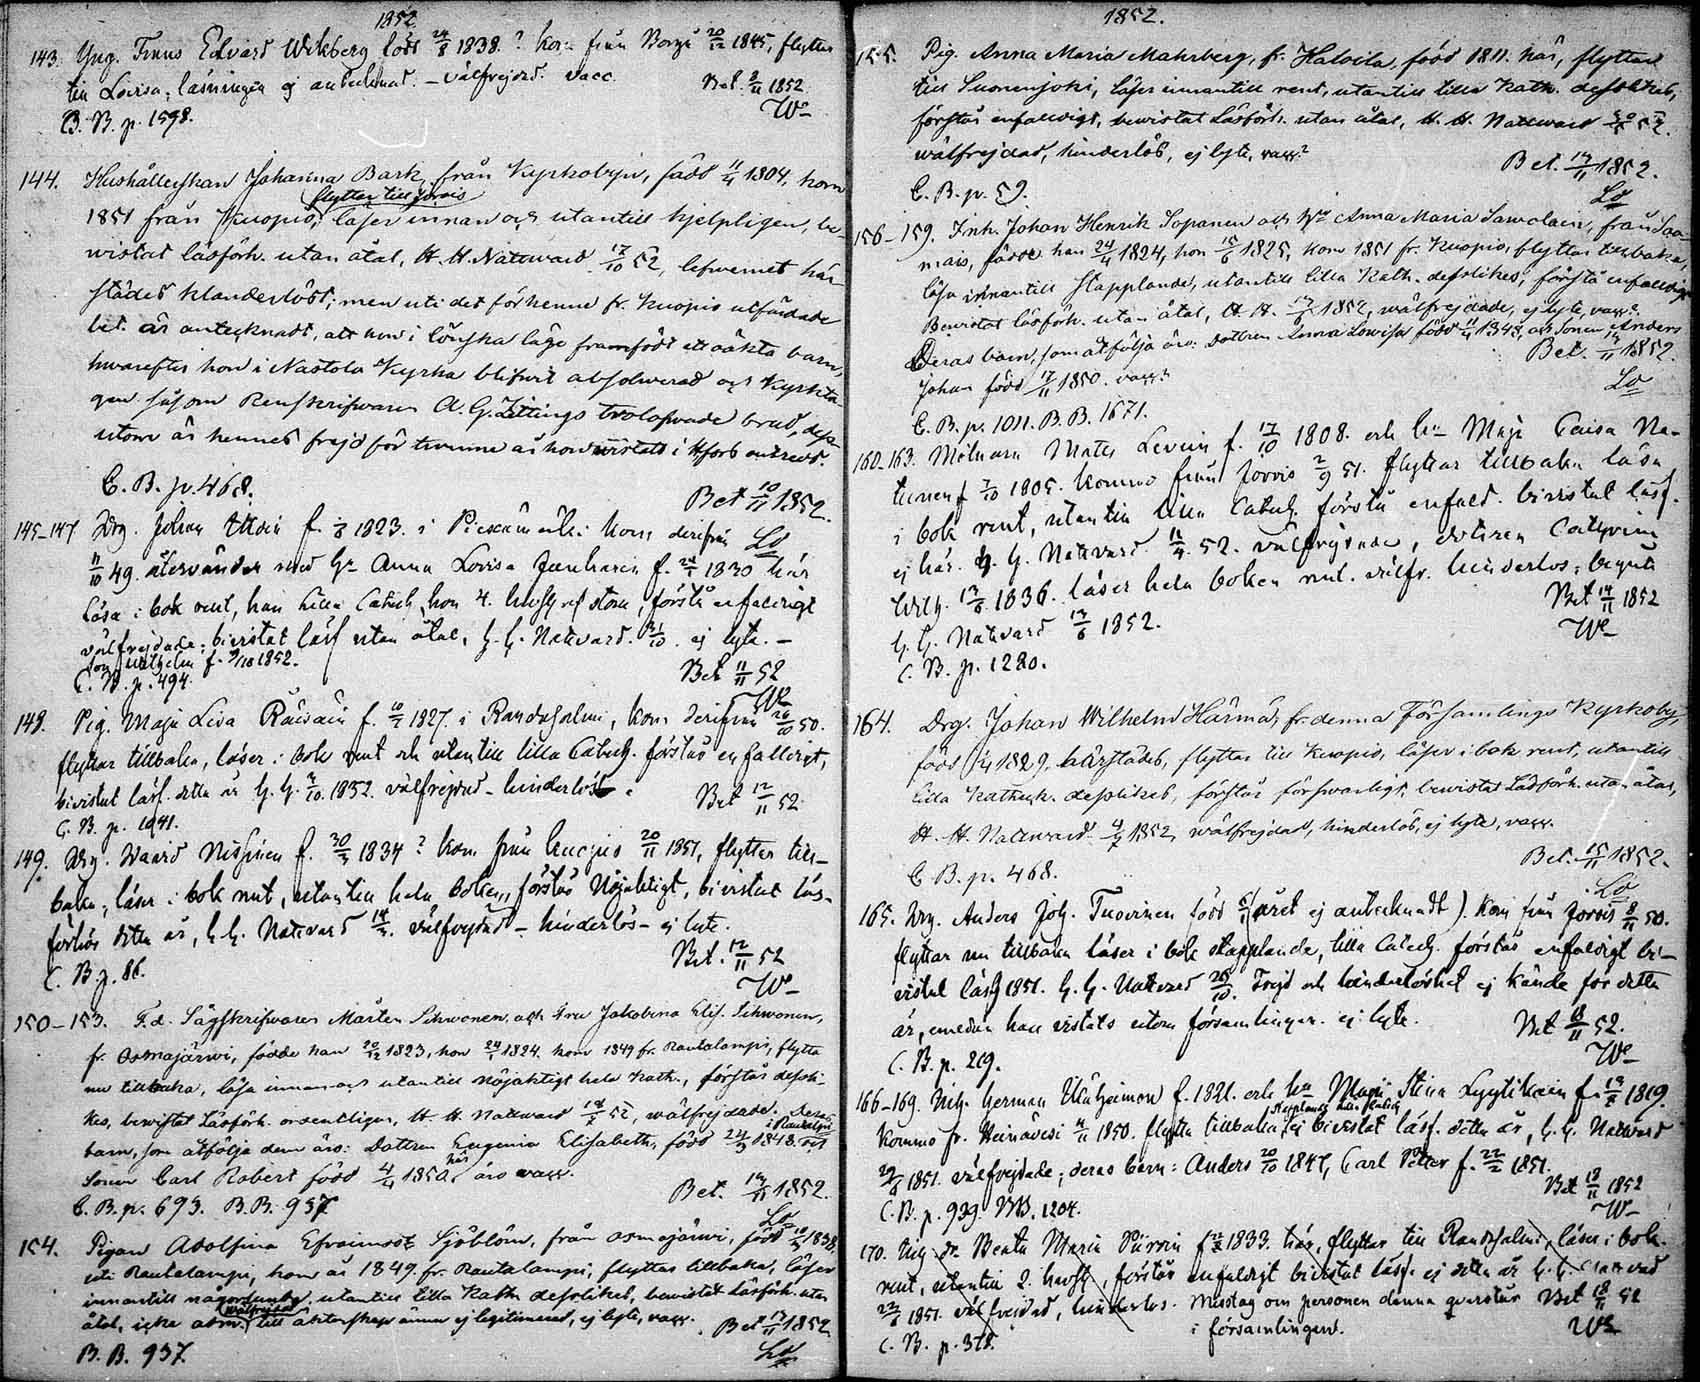 1852.
143. Yng. Frans Edvard Wikberg född 24/8 1838.? kom från Borgå 20/12 1845, flyttar
till Lovisa, läsningen ej antecknad. – välfrejdad. vacc. Bet. 2/11 1852.
B. B. p. 1598. We
144. Hushållerskan Johanna Bark, från Kyrkobyn, född 11/4 1804, kom
flyttar till Jorois
1851 från Kuopio, läser innan och utantill hjelpligen, be-
wistat läsförh. utan åtal, H. H. Nattward 17/10 52, lefwernet här-
städes klanderlöst; men uti det för henne fr. Kuopio utfärdade
bet. är antecknadt, att hon i lönska läge framfödt ett oäkta barn,
hwarefter hon i Nastola Kyrka blifwit absolwerad och Kyrkta-
gen såsom Renskrifwaren A. G. Zittings trolofwade brud, dess-
utom är hennes frejd för twenne år hon wistats i Hfors
C. B. p. 468. Bet 10/11 1852.
145–147 Drg. Johan f. 1823. i Pieksämäki kom derifrån Lo
11/10 49. återvänder med Hu Anna Lovisa f. 24/1 1830 här
läsa i bok rent, han Lilla Catech, hon 4. hufst. af stora, förstå enfaldigt
välfrejdade: bivistat läsf utan åtal, H. H. Nattvard. 31/10. ej lyte. –
Son Wilhelm f. 9/10 1852.
C. B. p. 494. Bet 11/11 52
We
148. Pig. Maja Lisa Räisäin f. 10/7 1827. i Randasalmi, kom derifrån 26/10 50.
flyttar tillbaka, läser i bok rent och utantill lilla Catech. förstår enfaldigt,
bivistat läsf. detta år H. H. 1852. välfrejdad – hinderlös. Bet 12/11 52
C. B. p. 1041.
149. Drg. Nissinen f. 30/3 1834? kom från Kuopio 20/11 1851, flyttar till-
baka, läser i bok rent, utantill hela boken, förstås Nöjaktigt, bivistat läs-
förhör detta år, H. H. Nattvard 14/3. välfrejdad – hinderlös – ej lyte.
C. B. p. 86. Bet. 12/11 52
We
150–153. F. d. Sågskrifwaren Mårten Sihwonen, och Fru Jakobina Elis. Sihwonen,
fr. Osmajärwi, födde han 20/12 1823, hon 24/1 1824. kom 1849 fr. Rautalampi, flytta
nu tillbaka, läsa innan och utantill nöjaktigt hela Kath., förstås dessli-
kes, bewistat Läsförh. ordentligen, H. H. Nattward 18/7 52, wälfrejdade. Deras
barn, som åtfölja dem äro: Dottren Eugenia Elisabeth, född 24/3 1848. i Rautalpi och
Sonen Carl Robert född 4/4 1850 här, äro vacc.
C. B. p. 693. B. B. 957. Bet. 13/11 1852.
Lo
154. Pigan Adolfina Efraimsdt Sjöblom, från Osmajärwi, född 1838,
uti Rautalampi, kom år 1849. fr. Rautalampi, flyttar tillbaka, läser
innantill någorlunda, utantill lilla Kath. desslikes, bewistat Läsförh. utan
wälfrejdad
åtal, icke adm., till äktenskap ännu ej legitimerad, ej lyte, vacc. Bet 13/11 1852
B. B. 937. Lo
1852.
155. Pig. Anna Maria Mahrberg, fr. Haloila, född 1811. här, flyttar
till Suonenjoki, läser innantill rent, utantill lilla Kath. desslikes,
förstår enfaldigt, bewistat Läsförh. utan åtal, H. H. Nattward
wälfrejdad, hinderlös, ej lyte, vacc. Bet. 14/11 1852.
C. B. p. 59. Lo
156–159. Inh. Johan Henrik Sopanen och Hu Anna Maria Samolain, från Saa-
mais, födde han 24/4 1824, hon 15/6 1825, kom 1851 fr. Kuopio, flyttar tillbaka,
läsa innantill stapplande, utantill lilla Kath. desslikes, förstå enfaldigt
Bewistat läsförh. utan åtal, H. H. 1852, wälfrejdade, ej lyte, vacc.
Deras barn, som åtfölja äro: Dottren Anna Lowisa född 1848, och Sonen Anders
Johan född 17/11 1850. vacc. Bet. 14/11 1852.
C. B. p. 1011. B. B. 1671. Lo
160–163. Mölnarn Mats Levein f. 17/10 1808. och Hu Maja Caisa Na-
tunen f 7/10 1805. kommo från Jorois 2/9 51. flyttar tillbaka läsa
i bok rent, utantill lilla Catech. förstå enfald. bivistat läsf.
ej här. H. H. Nattvard 52. välfrejdade, dottren Cathrina
Wilh. 13/6 1836. läser hela boken rent. välfr. hinderlös; begått
H. H. Nattvard 13/6 1852. Bet 14/11 1852
C. B. p. 1280. We
164. Drg. Johan Wilhelm Härmä, fr. denna Församlings Kyrkoby
född 1829, härstädes, flyttar till Kuopio, läser i bok rent, utantill
lilla Kathech. desslikes, förstår försvarligt, bewistat Läsförh. utan åtal,
H. H. Nattward 4/7 1852, wälfrejdad, hinderlös, ej lyte, vacc.
C. B. p. 468. Bet. 15/11 1852.
Lo
165. Drg. Anders Joh. Tuovinen född (året ej antecknadt). kom från Jorois 8/11 50.
flyttar nu tillbaka läser i bok stapplande, lilla Catech. förstår enfaldigt bi-
vistat läsf 1851. H. H. Nattvard 26/10. Frejd och hinderlöshet ej kända för detta
år, emedan han vistats utom församlingen. ej lyte. Bet 18/11 52.
C. B. p. 219. We
166–169. Inh. Herman f. 1821. och Hu Maja Stina Lyytikäin f. 1819.
stapplande lilla Katech
kommo fr. Heinävesi 4/11 1850. flytta tillbaka, ej bivistat läsf. detta år, H. H. Nattvard
1851 välfrejdade; deras barn: Anders 20/10 1847, Carl Petter f. 22/2 1851.
C. B. p. 939. BB. 1204. Bet 18/11 1852
We
170. Pig Beata Maria f 1833. här, flyttar till Randasalmi, läser i bok
rent, utantill 2. hufst, förstår enfaldigt bivistat läsf. ej detta år H. H. Nattvard
1851 välfrejdad, hinderlös. Misstag om personen denna qvarstår Bet 18/11 52
C. B. p. 378. i församlingen. We